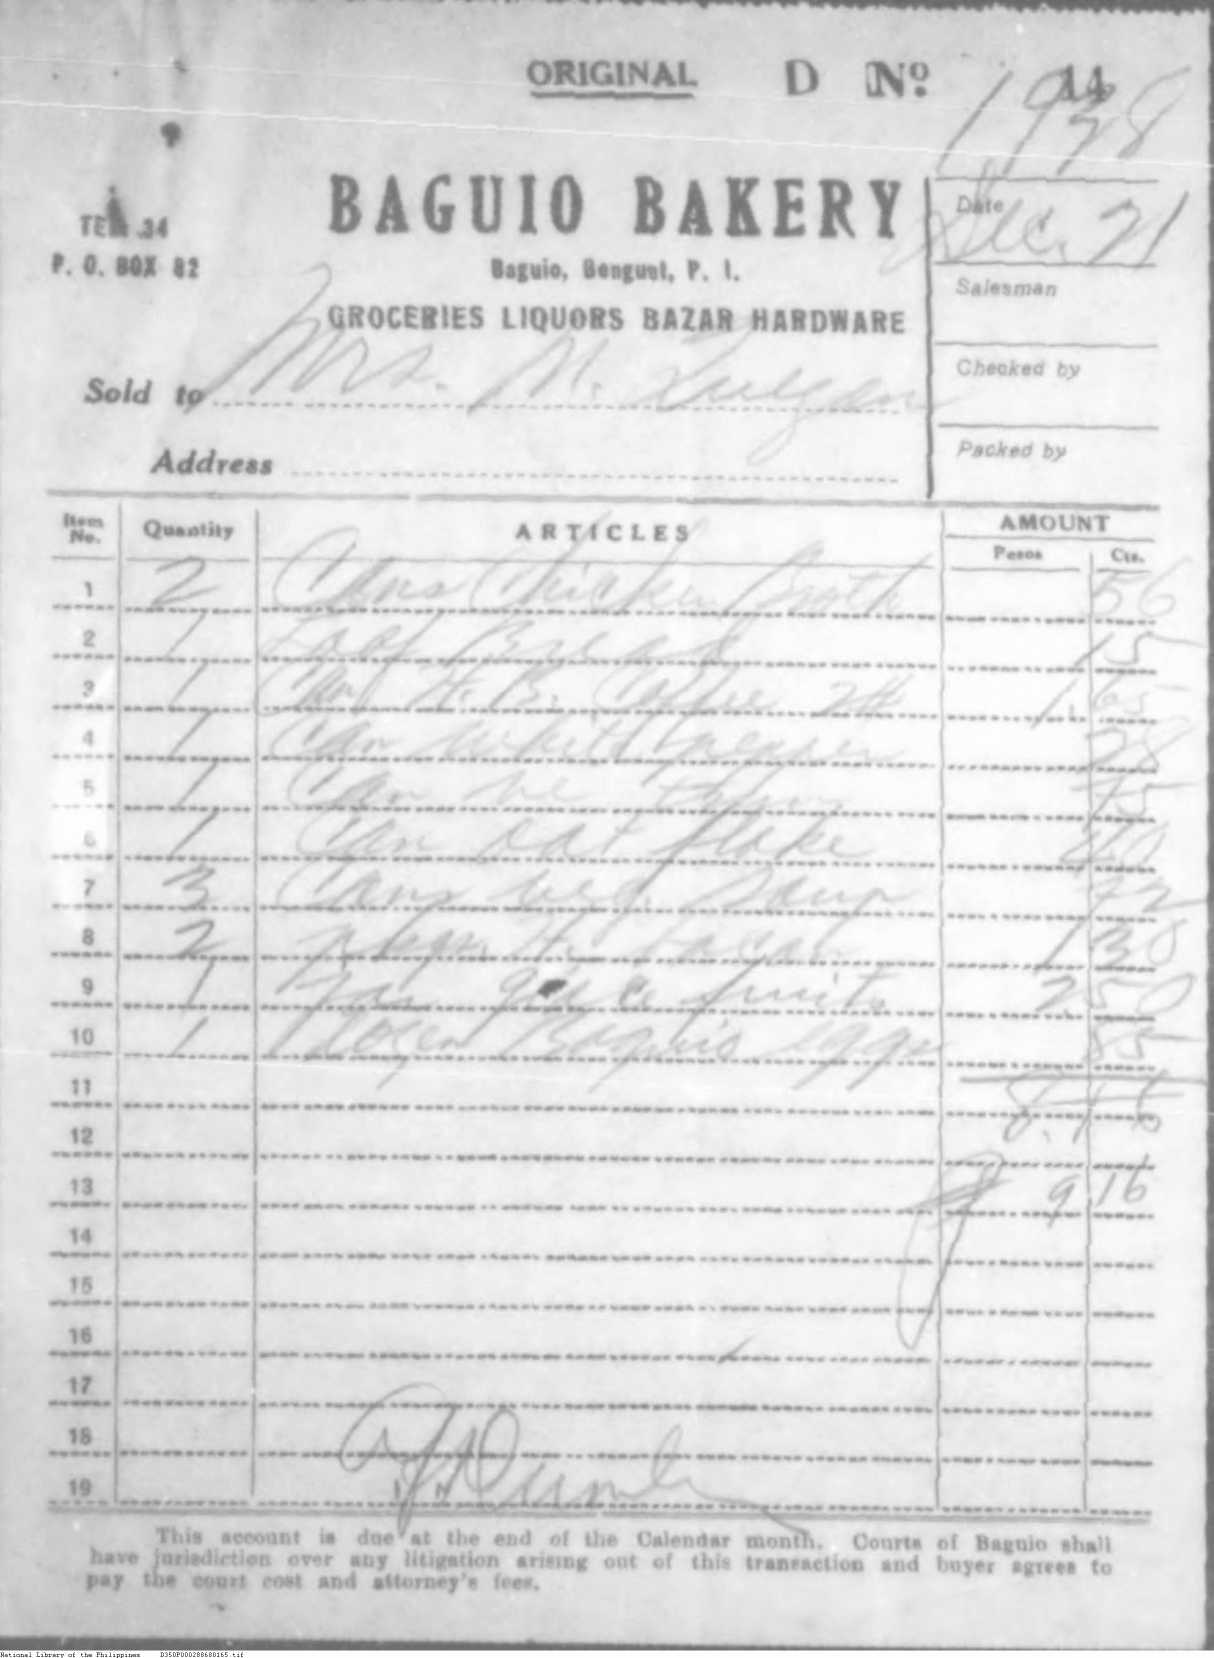 ORIGINAL D No. 14
1938
BAGUIO BAKERY
TEL. 34
P. O. BOX 82
Baguio, Benguet, P. I.
GROCERIES LIQUORS BAZAR HARDWARE
Date Dec. 21
Salesman
Checked by
Packed by
Sold to Mrs. M.
Address
Item No. Quantity ARTICLES AMOUNT
Pesos Cts.
1 2 Cans Chicken Broth 56
2 1 Loaf Bread 15
3 1 Can H. B. Coffee 2# 1.65
4 1 Can 28
5 1 Can 75
6 1 Can oat flake
7 3 Cans veg. Soup 72
8 2 1 30
9 1 fruits 2.50
10 1 Dozen Baguio eggs 55
11
12
13 9.16
14
15
16
17
18
19
This account is due at the end of the Calendar month. Courts of Baguio shall
have jurisdiction over any litigation arising out of this transaction and buyer agrees to
pay the court cost and attorney's fees.
National Library of the Philippines D350P000288680165.tif